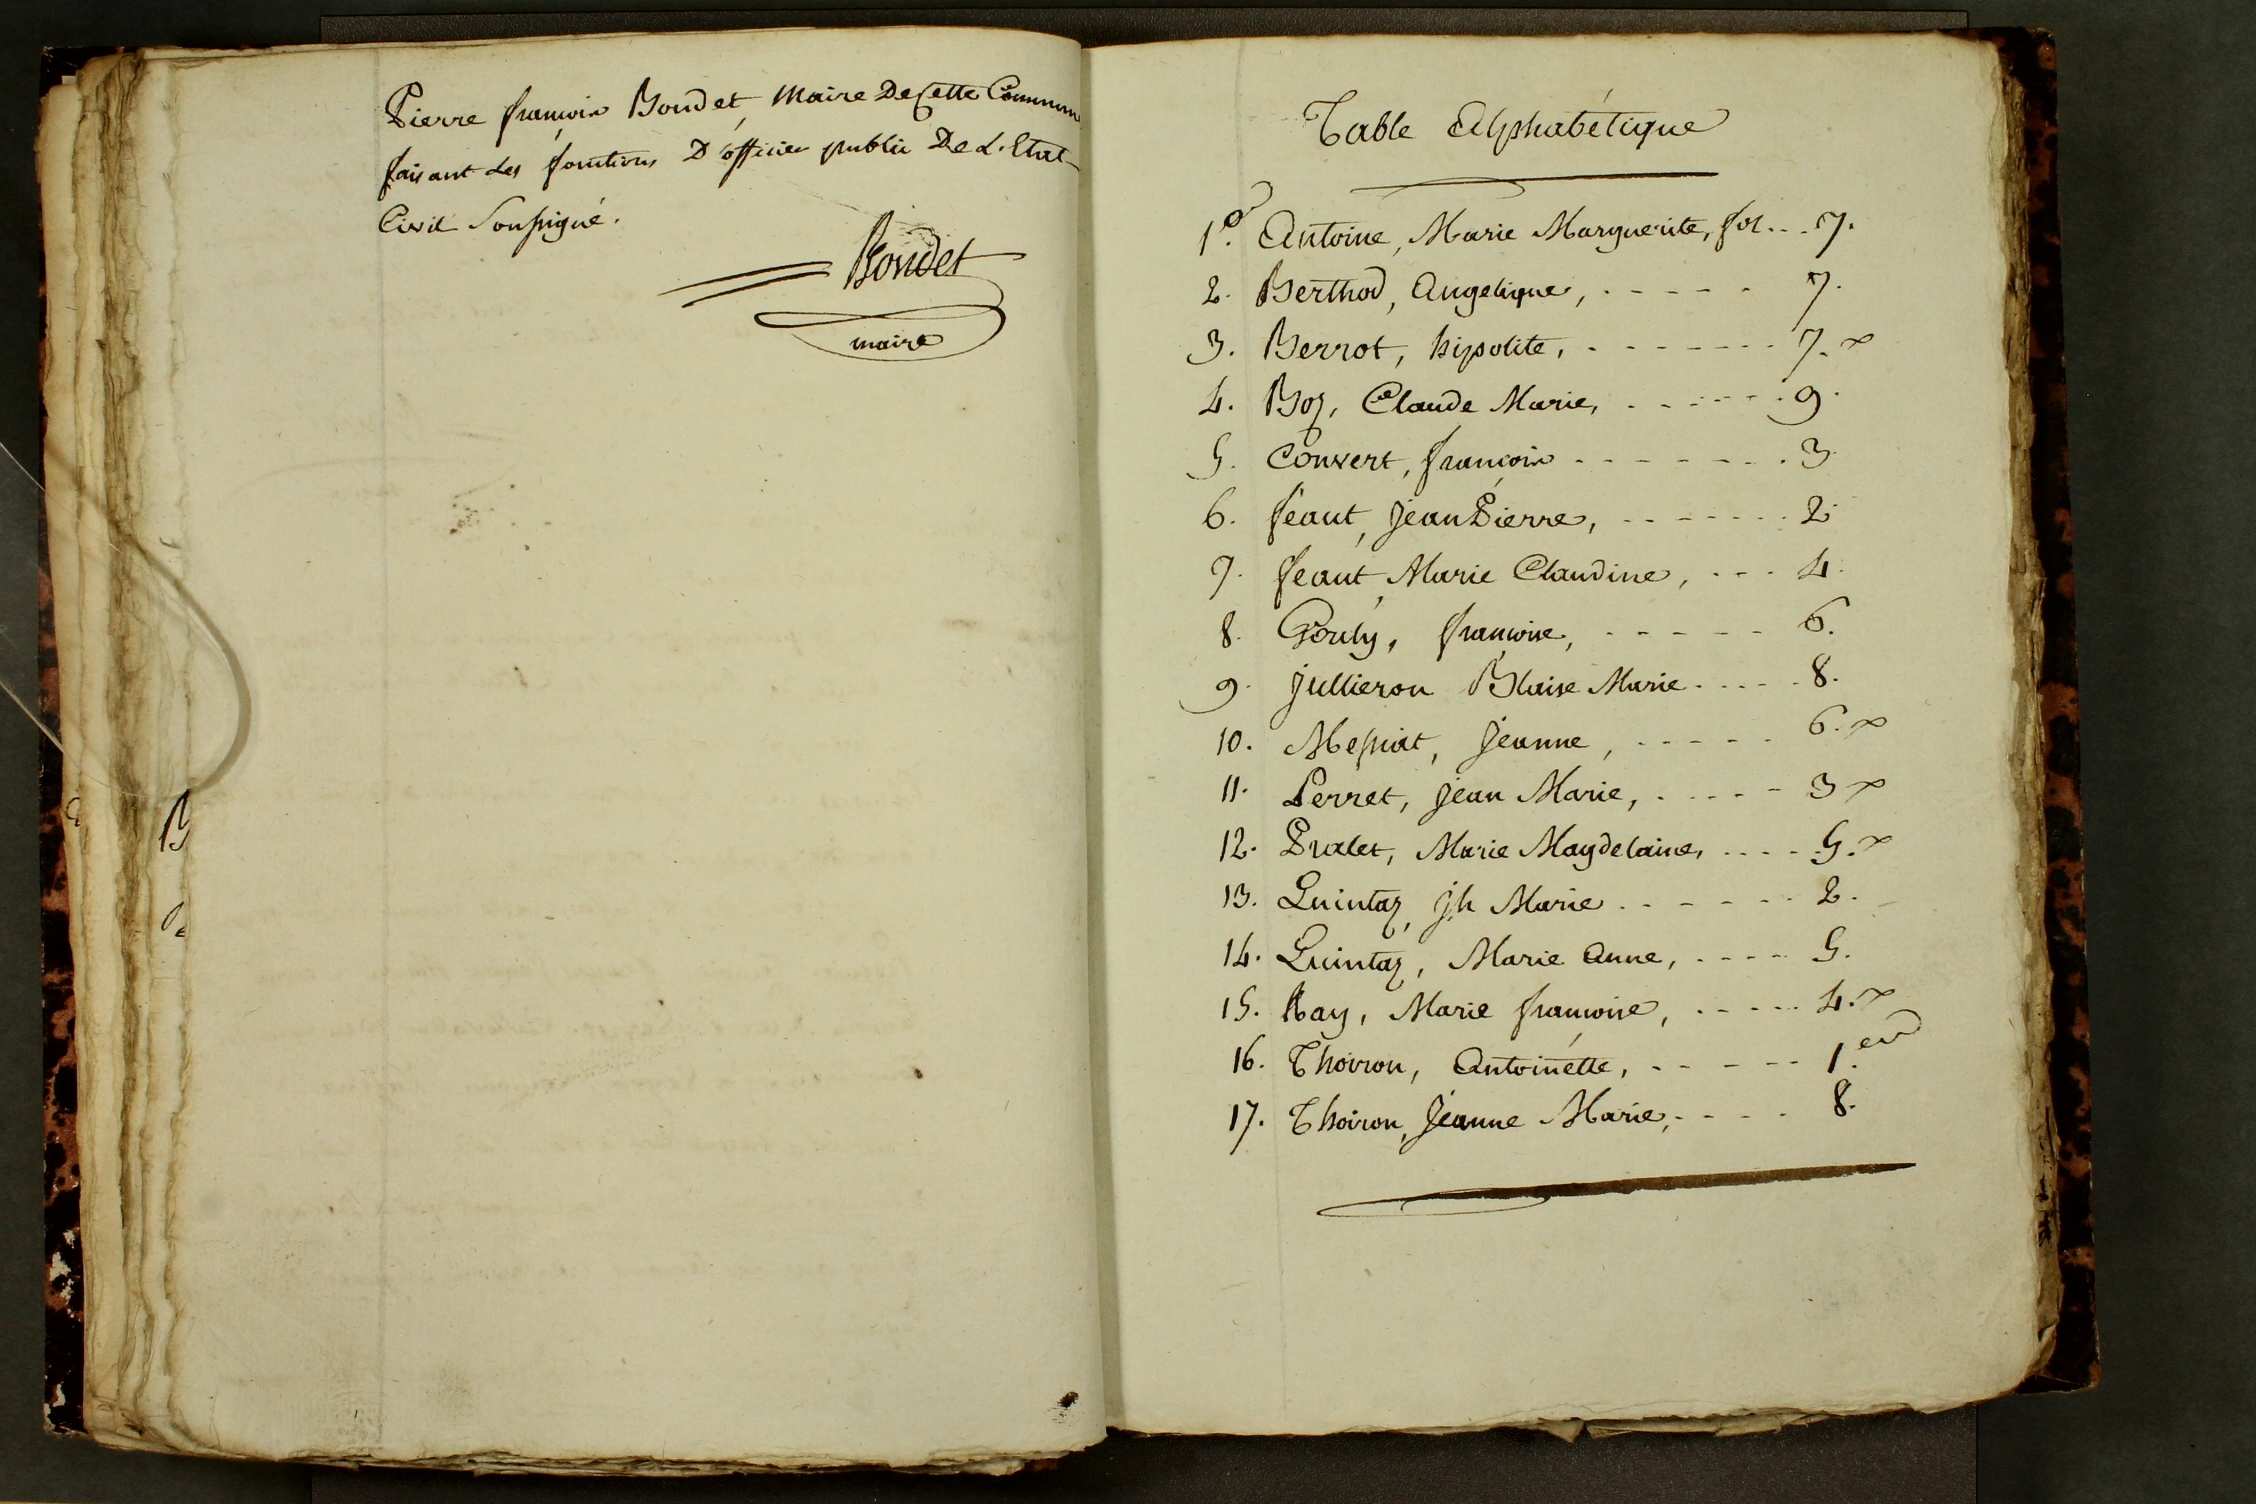 Pierre françois Boudet maire De Cette Commune
faisant les fonctions D'officier public De L'Etat
Civil Soussigné.
Boudet
maire
B
Table Alphabétique
1.º Antoine, Marie Marguerite, fol... 7.
2. Berthod, Angelique, . - - - - - 7.
3. Berrot, hipolite, . - - - - - - - 7. x
4. Boz, Claude Marie, . - - - - - - 9.
5. Convert, françois - - - - - - - . 3
6. féaut, Jean Pierre, - - - - - - - 2.
7. feaut, Marie Claudine, . - - . 4.
8. Gouly, françoise, . - - - - - 6.
9. Jullieron Blaise Marie. - - - - 8.
10. Messiat, Jeanne, . - - - - - 6. x
11. Perret, Jean Marie, . - - - - 3 x
12. Pralet, Marie Magdelaine, . - - - 5. x
13. Quintaz, Jh Marie. - - - - - - 2.
14. Quintaz, Marie Anne, . - - - - 5.
15. Ray, Marie françoise, . - - - - 4. x
16. Thoiron, Antoinette, . - - - - - 1.er
17. Thoiron, Jeanne Marie, - - - - 8.